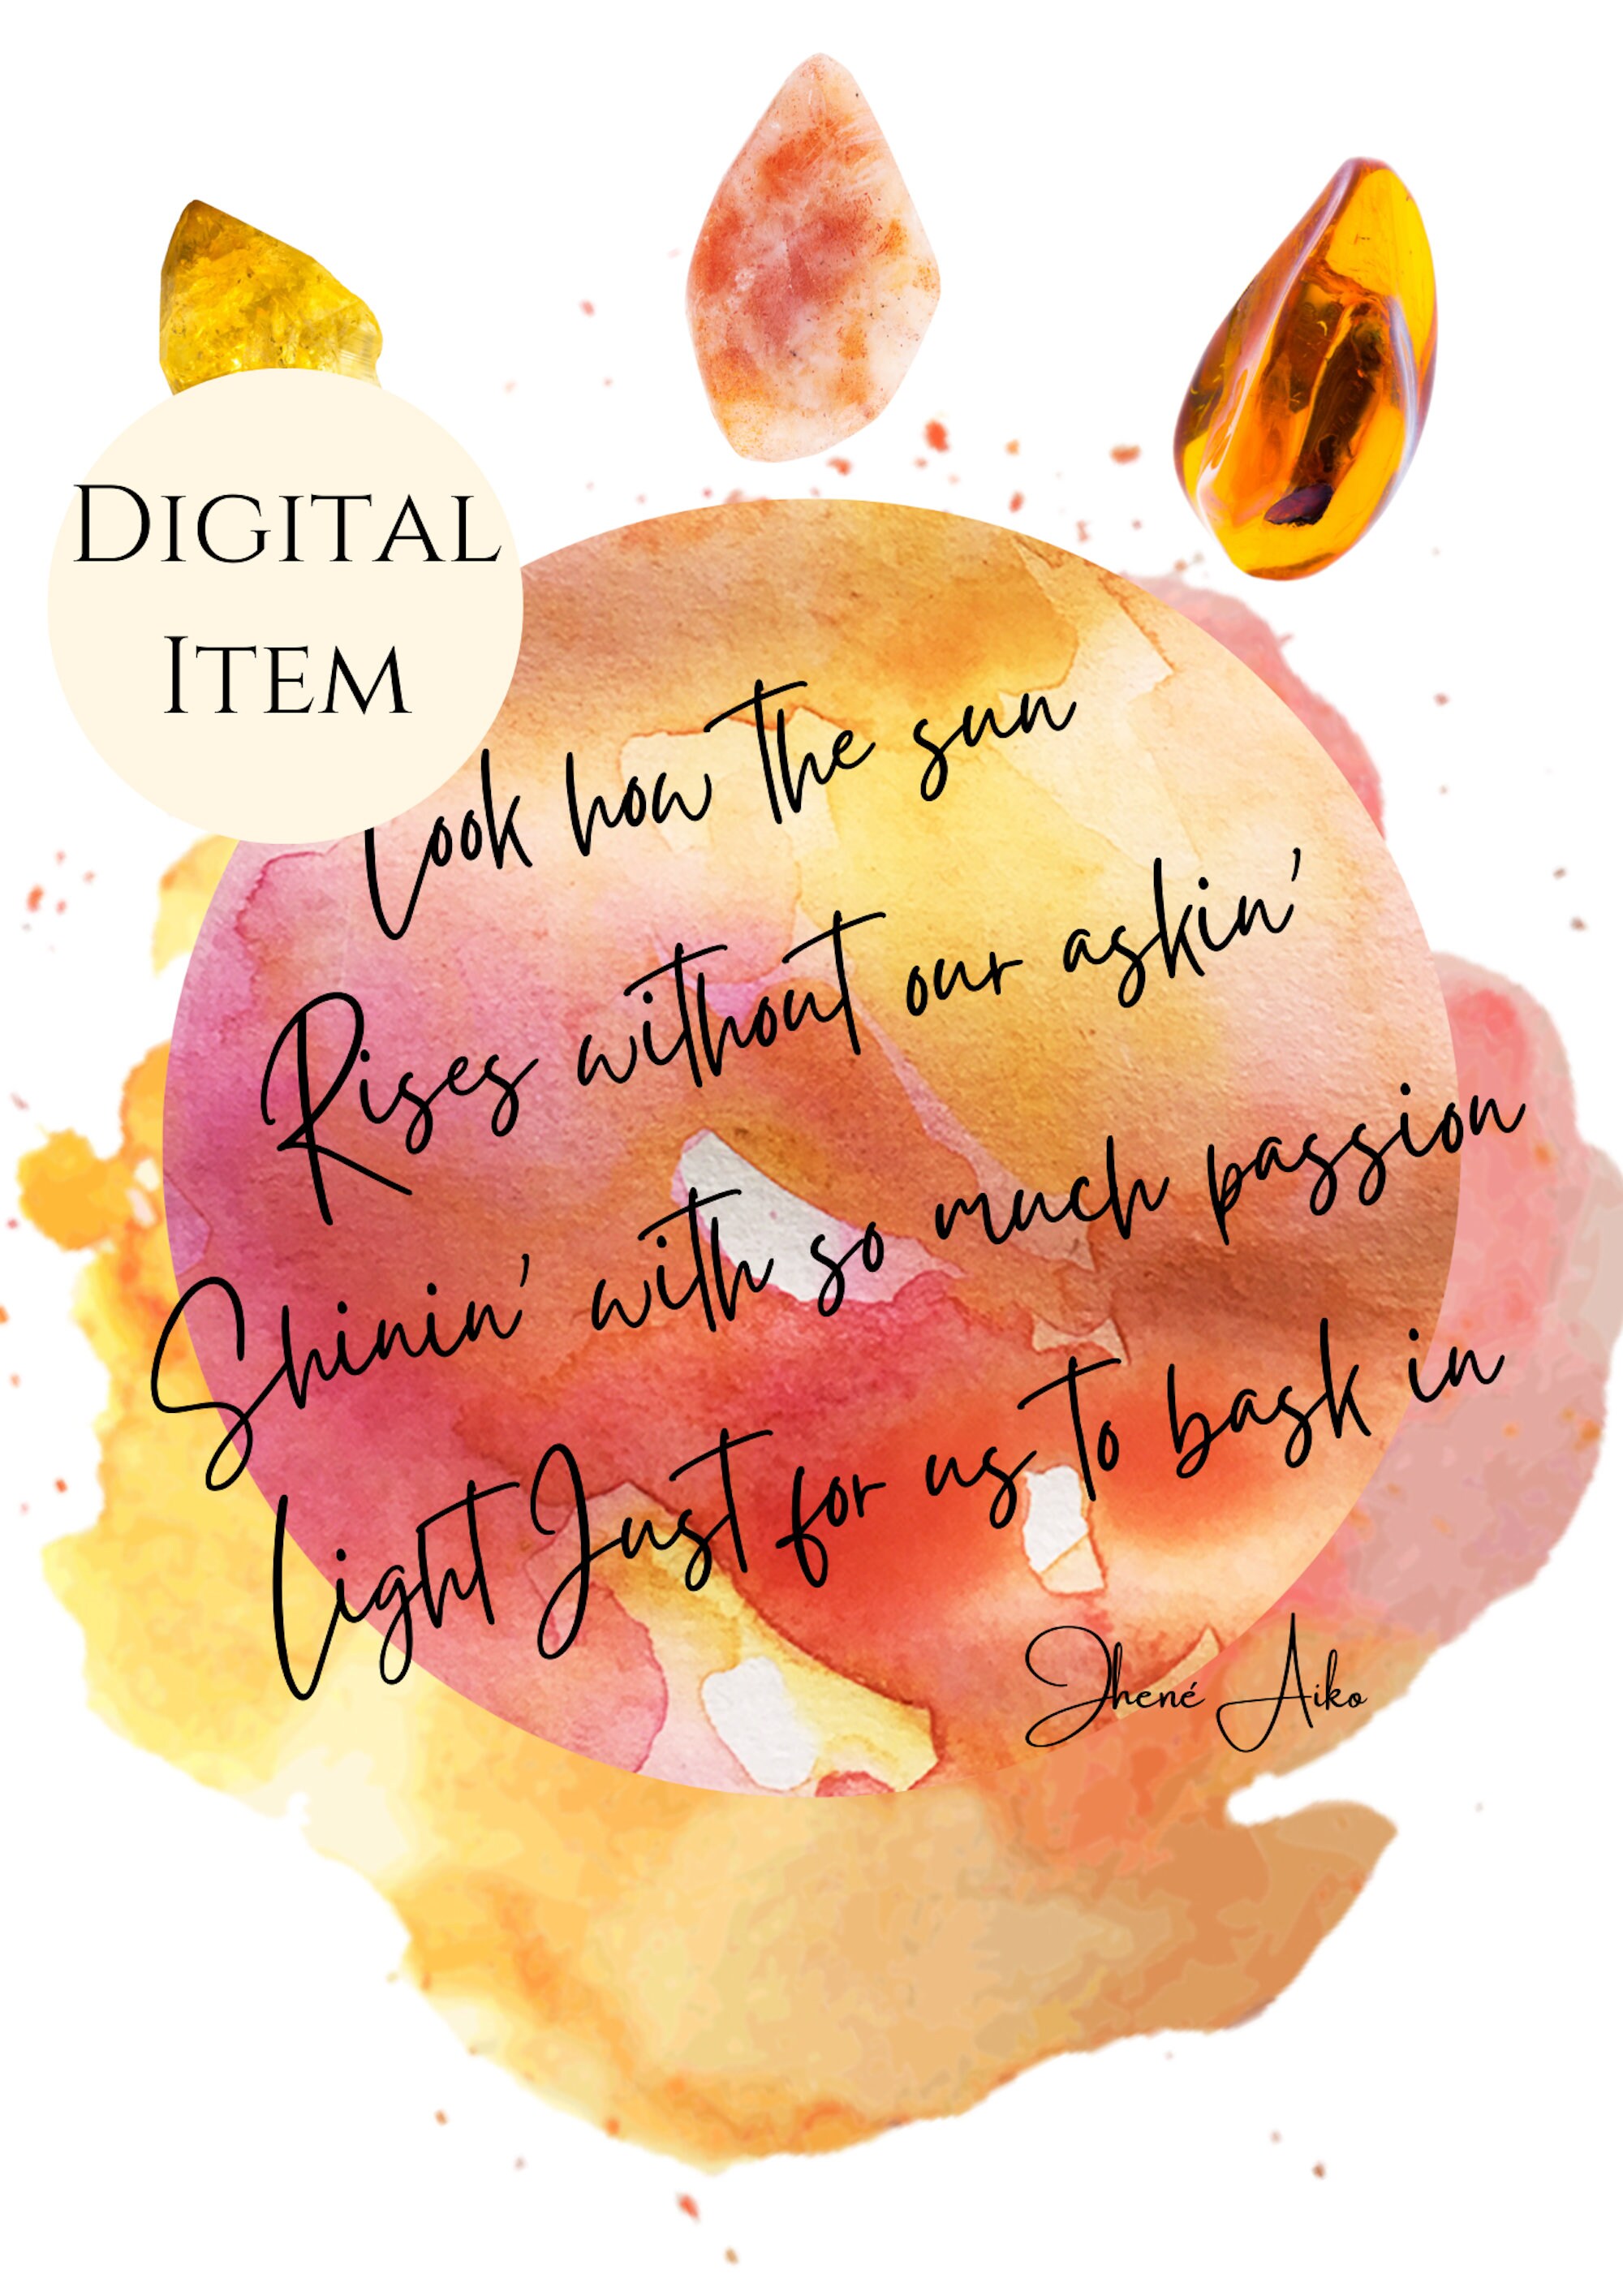 Digital
Item
Look how the sun
Rises without our askin'
Shinin' with so much passion
Light Just for us to bask in
Jhené Aiko